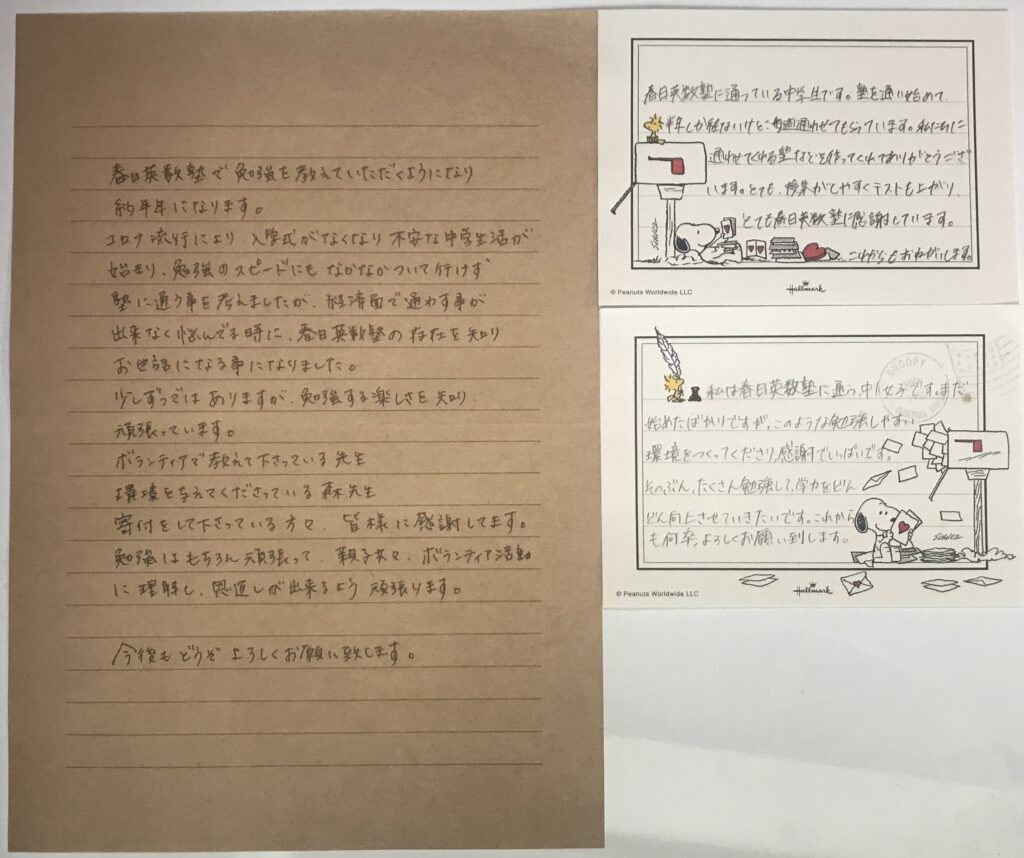 春日英数塾で勉強を教えていただくようになり
約半年になります。
コロナ流行により、入学式がなくなり不安な中学生活が
始まり、勉強のスピードにもなかなかついて行けず
塾に通う事を考えましたが、経済面で通わす事が
出来なく悩んでる時に、春日英数塾の存在を知り
お世話になる事になりました。
少しずつではありますが、勉強する楽しさを知り、
頑張っています。
ボランティアで教えて下さっている先生
環境を与えてくださっている森先生
寄付をして下さっている方々、皆様に感謝してます。
勉強はもちろん頑張って、親子共々、ボランティア活動
に理解し、恩返しが出来るよう頑張ります。
今後もどうぞよろしくお願い致します。
春日英数塾に通っている中学生です。塾を通い始めて、
半年しか経ないけど、毎週通わせてもらっています。私たちに
通わせてくれる塾などを作ってくれてありがとうござ
います。とても、授業がしやすくテストも上がり、
とても春日英数塾に感謝しています。
これからもおねがいします。
SCHULZ
© Peanuts Worldwide LLC
Hallmark
私は春日英数塾に通う、中1女子です。まだ
始めたばかりですが、このような勉強しやすい
環境をつくってくださり、感謝でいっぱいです。
そのぶん、たくさん勉強して、学力をどん
どん向上させていきたいです。これから
も何卒よろしくお願い到します。
SNOOPY
SCHULZ
© Peanuts Worldwide LLC
Hallmark